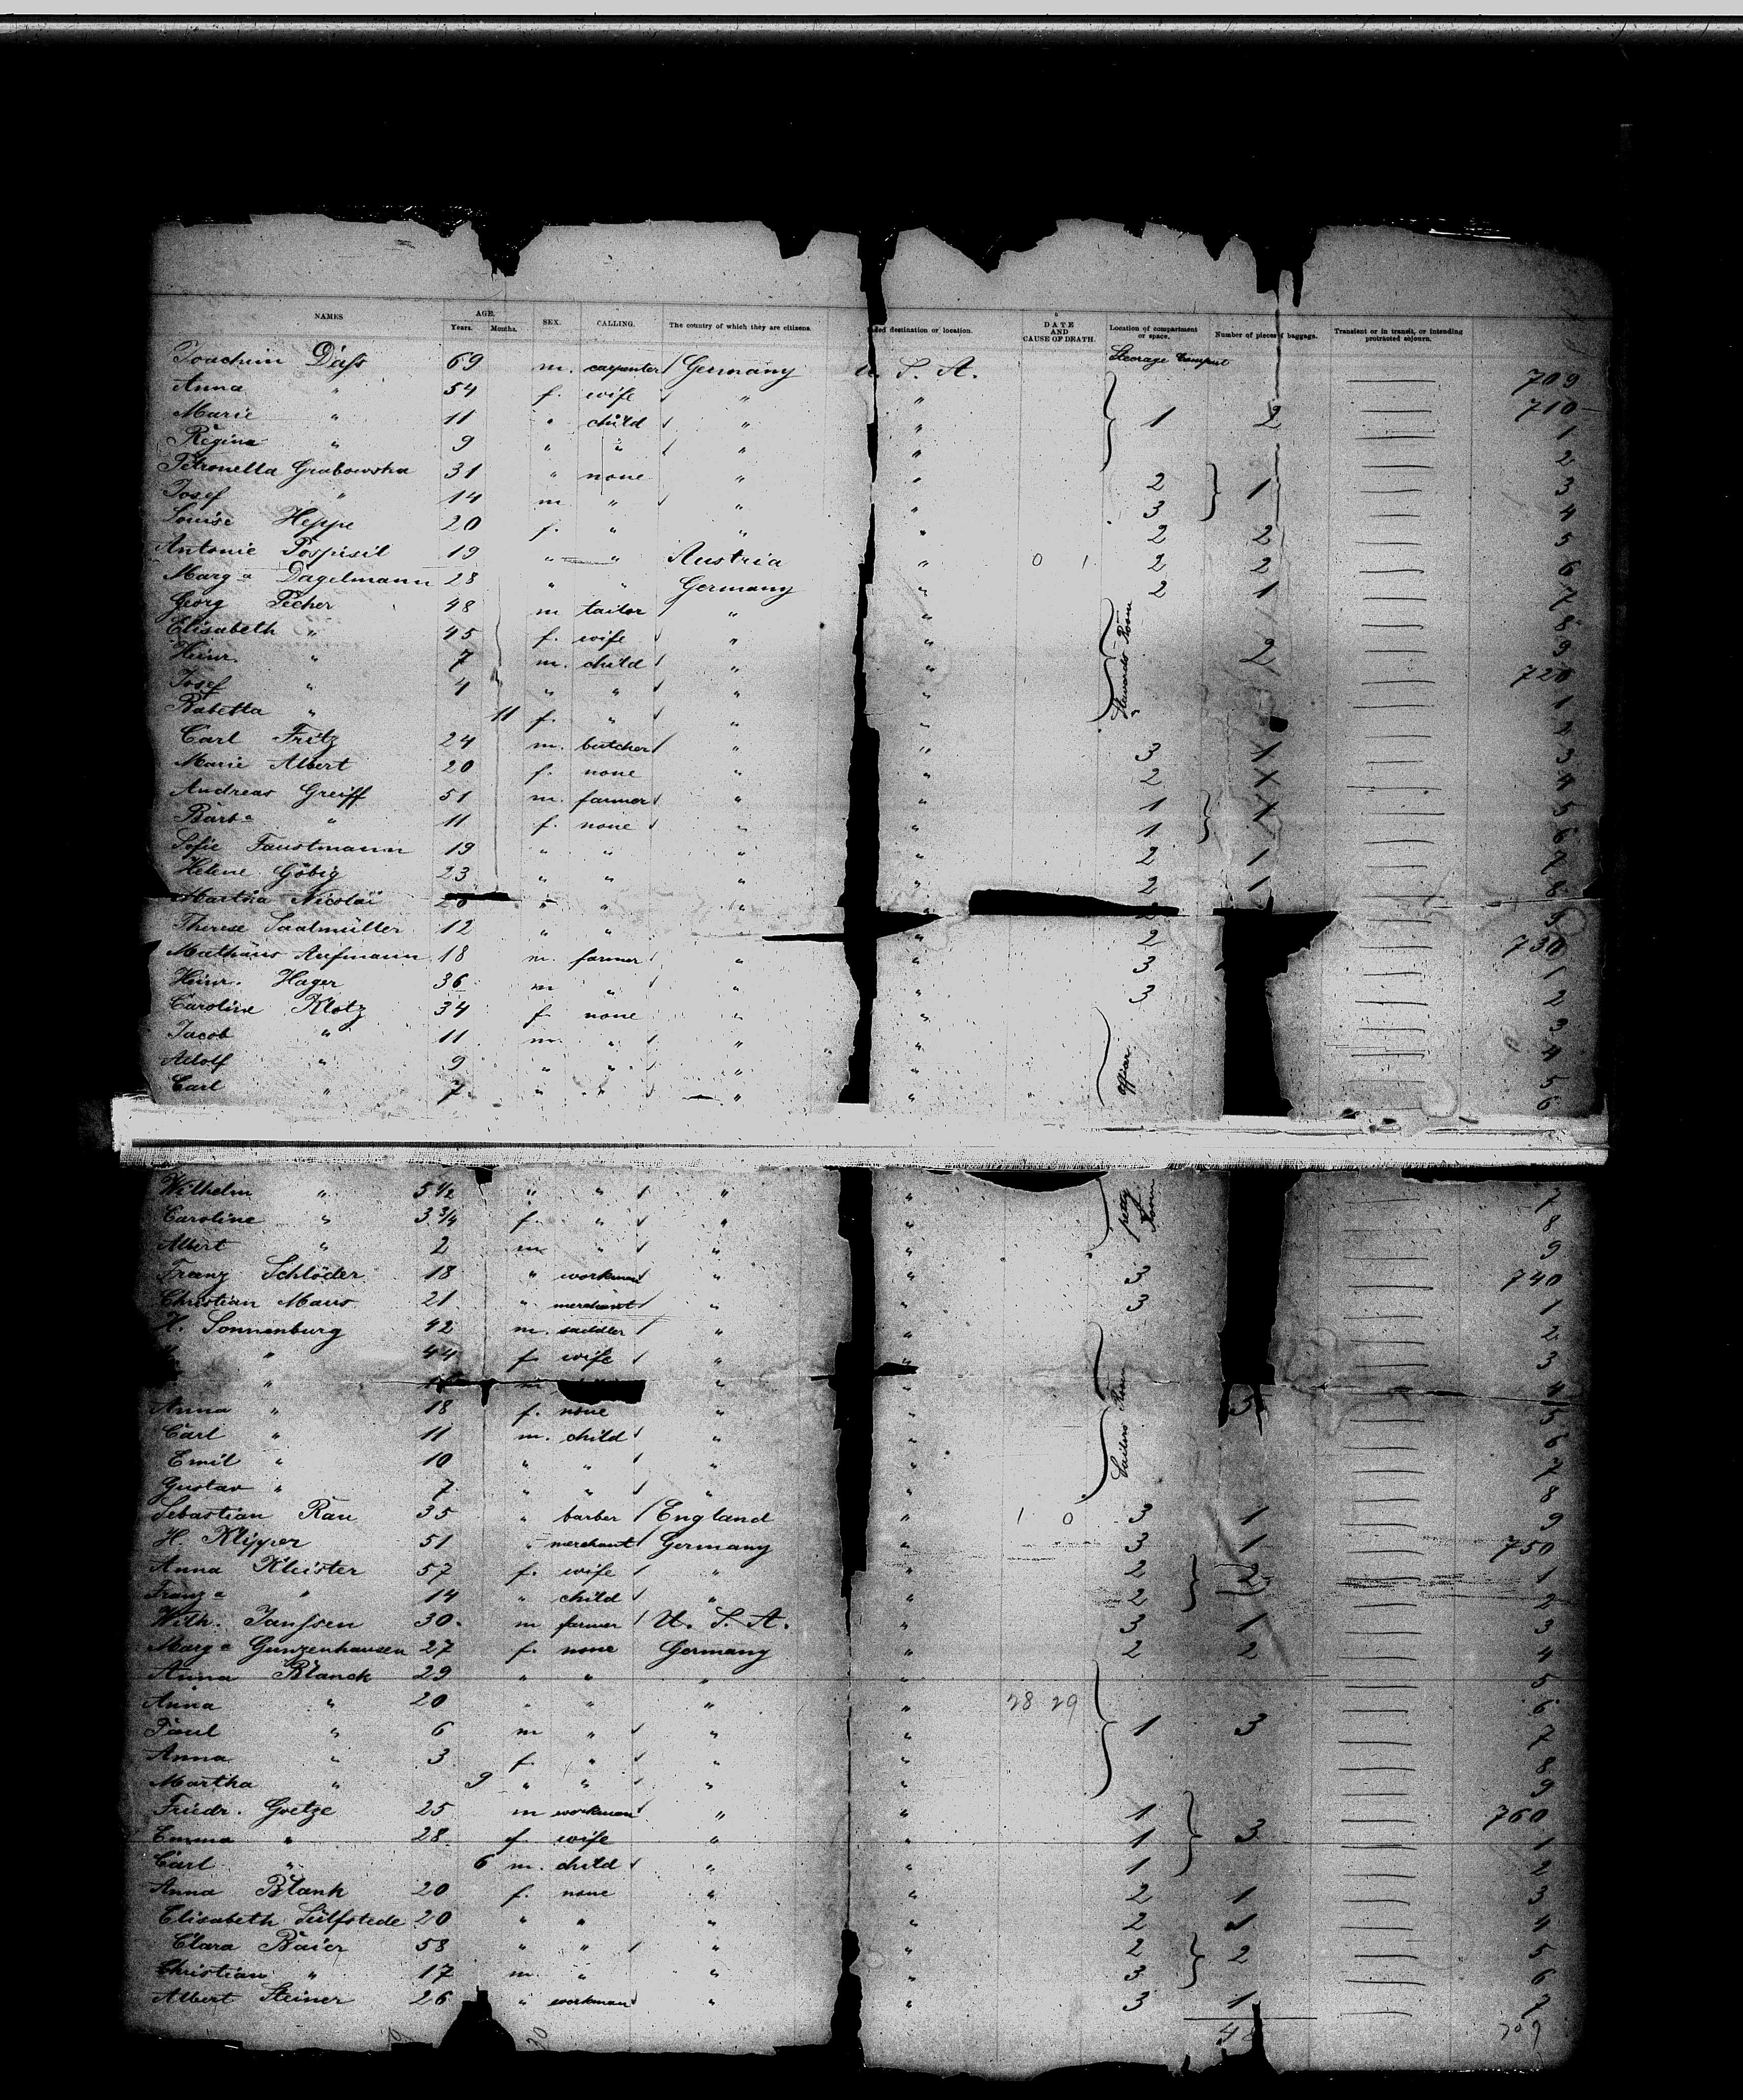 NAMES AGE. Years. Months. SEX. CALLING. The country of which they are citizens. destination or location. DATE AND CAUSE OF DEATH. Location of compartment or space. Number of pieces of baggage. Transient or in transit, or intending protracted sojourn.
Joachim Dass 69 m. carpenter Germany U. S. A. Steerage Compart 709
Anna " 54 f. wife " " 710
Marie " 11 " child " " 1 2 1
Regina " 9 " " " " 2
Petronella Grabowska 31 " none " " 2 1 3
Josef " 14 m " " " 3 4
Louise Heppe 20 f. " " " 2 2 5
Antonie Pospisil 19 " " Austria " 0 1 2 2 6
Marga Dagelmann 28 " " Germany " 2 1 7
Georg Pecher 48 m tailor " " Stewards Room 8
Elisabeth " 45 f. wife " " 9
Heinr. " 7 m. child " " 2 720
Josef " 4 " " " " 1
Babetta " 11 f. " " " 2
Carl Fritz 24 m. butcher " " 3 1 3
Marie Albert 20 f. none " " 2 4
Andreas Greiff 51 m. farmer " " 1 1 5
Barba " 11 f. none " " 1 6
Sofie Faustmann 19 " " " " 2 1 7
Helene Göbig 23 " " " " 2 1 8
Martha Nicolai " " " " 9
Therese Saalmüller 12 " " " " 2 730
Mathäus Aufmann 18 m. farmer " " 3 1
Heinr. Hager 36 m " " " 3 2
Caroline Klotz 34 f none " " 3
Jacob " 11 m. " " " 4
Adolf " 9 " " " " 5
Carl " 7 " " " " 6
Wilhelm " 5 1/2 " " " " petty Room 7
Caroline " 3 3/4 f. " " " 8
Albert " 2 m " " " 9
Franz Schlöder 18 " workman " " 3 740
Christian Maus 21 " merchant " " 3 1
H. Sonnenburg 42 m. saddler " " Sailors Room 2
" 44 f. wife " " 3
" " " 4
Anna " 18 f. none " " 3 5
Carl " 11 m. child " " 6
Emil " 10 " " " " 7
Gustav " 7 " " " " 8
Sebastian Rau 35 " barber England " 1 0 3 1 9
H. Klipper 51 " merchant Germany " 3 1 750
Anna Kleister 57 f. wife " " 2 2 1
Franza " 14 " child " " 2 2
Wilh. Janssen 30 m farmer U. S. A. " 3 1 3
Marga Gunzenhausen 27 f. none Germany " 2 2 4
Anna Blanck 29 " " " " 5
Anna " 20 " " " " 28 29 6
Paul " 6 m " " " 1 3 7
Anna " 3 f. " " " 8
Martha " 9 " " " " 9
Friedr. Goetze 25 m workman " " 1 760
Emma " 28 f wife " " 1 3 1
Carl " 6 m. child " " 1 2
Anna Blank 20 f. none " " 2 1 3
Elisabeth Sülfstede 20 " " " " 2 1 4
Clara Baier 58 " " " " 2 2 5
Christian " 17 m. " " " 3 6
Albert Steiner 26 " workman " " 3 1 7
709